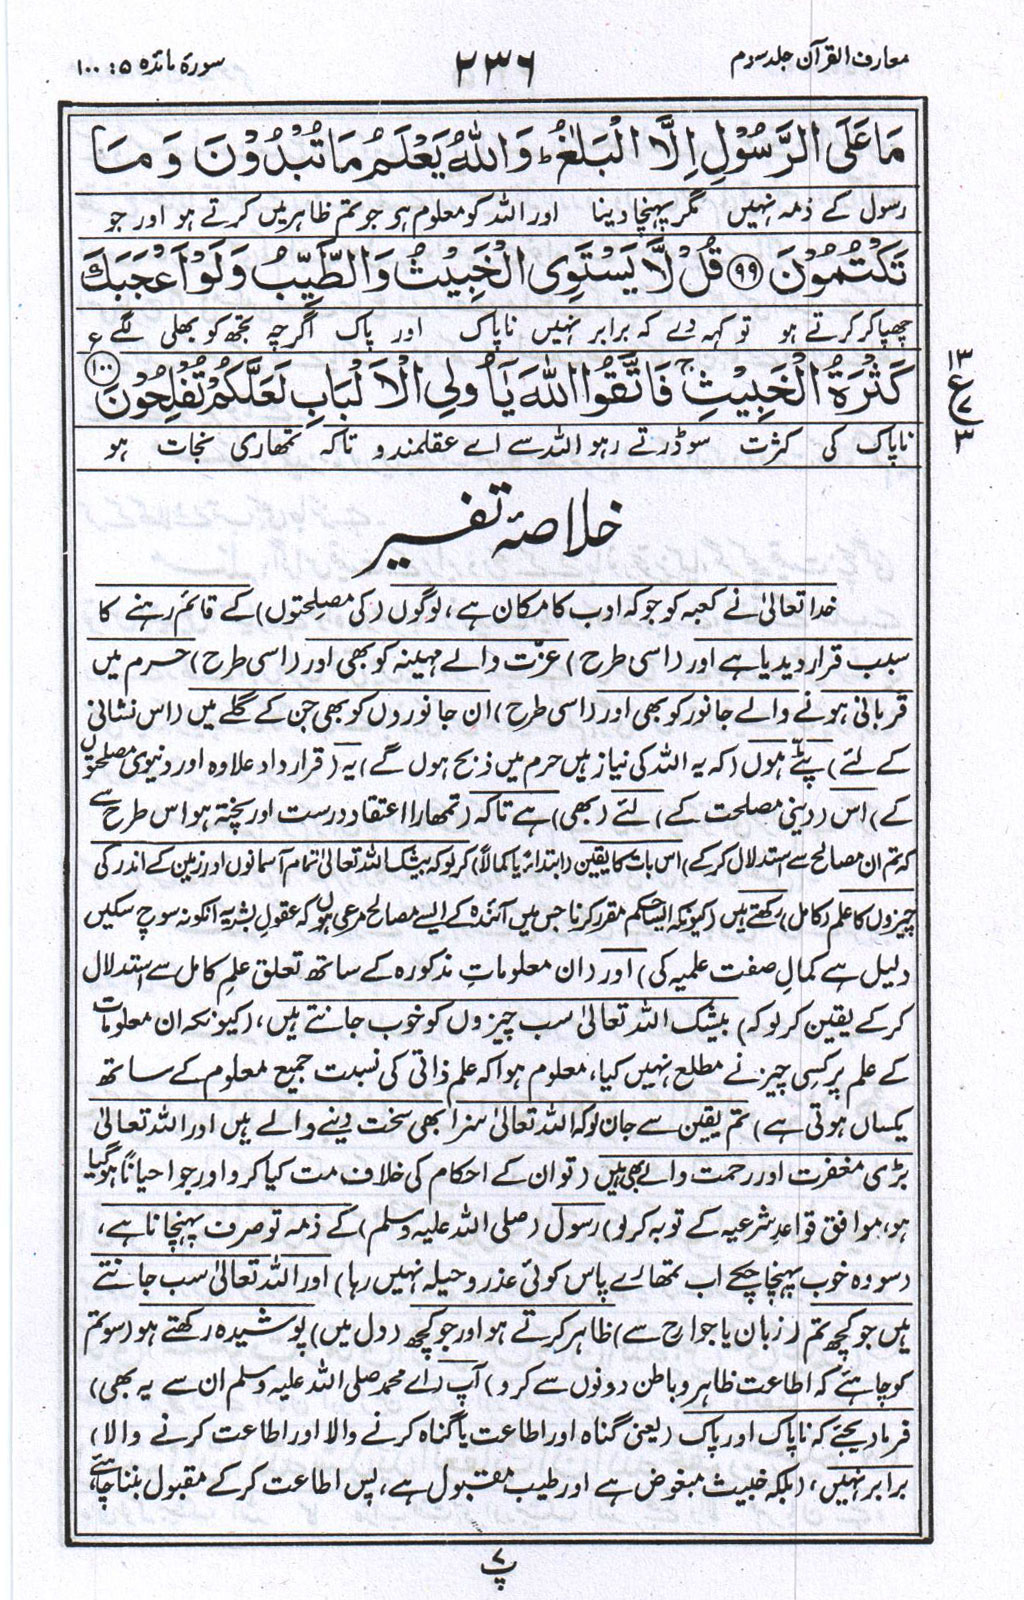 معارف القرآن جلد سوم
۲۳۶
سورۂ مائدہ ۵: ۱۰۰
مَا عَلَى الرَّسُوْلِ اِلَّا الْبَلٰغُ ؕ وَاللّٰهُ يَعْلَمُ مَا تُبْدُوْنَ وَ مَا
رسول کے ذمہ نہیں مگر پہنچا دینا اور اللہ کو معلوم ہو جو تم ظاہر میں کرتے ہو اور جو
تَكْتُمُوْنَ ﴿۹۹﴾ قُلْ لَّا يَسْتَوِى الْخَبِيْثُ وَالطَّيِّبُ وَلَوْ اَعْجَبَكَ
چھپا کر کرتے ہو تو کہہ دے کہ برابر نہیں ناپاک اور پاک اگرچہ تجھ کو بھلی لگے
كَثْرَةُ الْخَبِيْثِ ۚ فَاتَّقُوا اللّٰهَ يٰٓاُولِى الْاَلْبَابِ لَعَلَّكُمْ تُفْلِحُوْنَ ﴿۱۰۰﴾
ع
۱۳
ع
۷
۳
ناپاک کی کثرت سو ڈرتے رہو اللہ سے اے عقلمندو تاکہ تمھاری نجات ہو
خلاصۂ تفسیر
خدا تعالیٰ نے کعبہ کو جو کہ ادب کا مکان ہے، لوگوں (کی مصلحتوں) کے قائم رہنے کا
سبب قرار دیدیا ہے اور (اسی طرح) عزّت والے مہینہ کو بھی اور (اسی طرح) حرم میں
قربانی ہونے والے جانور کو بھی اور (اسی طرح) ان جانوروں کو بھی جن کے گلے میں (اس نشانی
کے لئے) پٹے ہوں (کہ یہ اللہ کی نیاز ہیں حرم میں ذبح ہوں گے) یہ (قرارداد علاوہ اور دنیوی مصلحتوں
کے) اس (دینی مصلحت کے) لئے (بھی) ہے تاکہ (تمھارا اعتقاد درست اور پختہ ہو اس طرح سے
کہ تم ان مصالح سے استدلال کرکے) اس بات کا یقین (ابتداءً یا کمالاً) کر لو کہ بیشک اللہ تعالیٰ تمام آسمانوں اور زمین کے اندر کی
چیزوں کا علم (کامل) رکھتے ہیں (کیونکہ ایسا حکم مقرر کرنا جس میں آئندہ کے ایسے مصالح مرعی ہوں کہ عقولِ بشریہ انکو نہ سوچ سکیں
دلیل ہے کمالِ صفت علمیہ کی) اور (ان معلوماتِ مذکورہ کے ساتھ تعلق علمِ کامل سے استدلال
کرکے یقین کر لو کہ) بیشک اللہ تعالیٰ سب چیزوں کو خوب جانتے ہیں، (کیونکہ ان معلومات
کے علم پر کسی چیز نے مطلع نہیں کیا، معلوم ہوا کہ علم ذاتی کی نسبت جمیع معلوم کے ساتھ
یکساں ہوتی ہے) تم یقین سے جان لو کہ اللہ تعالیٰ سزا بھی سخت دینے والے ہیں اور اللہ تعالیٰ
بڑی مغفرت اور رحمت والے بھی ہیں (تو ان کے احکام کی خلاف مت کیا کرو اور جو احیاناً ہو گیا
ہو، موافق قواعدِ شرعیہ کے توبہ کر لو) رسول (صلی اللہ علیہ وسلم) کے ذمہ تو صرف پہنچانا ہے،
(سو وہ خوب پہنچا چکے اب تمھارے پاس کوئی عذر و حیلہ نہیں رہا) اور اللہ تعالیٰ سب جانتے
ہیں جو کچھ تم (زبان یا جوارح سے) ظاہر کرتے ہو اور جو کچھ (دل میں) پوشیدہ رکھتے ہو (سو تم
کو چاہئے کہ اطاعت ظاہر و باطن دونوں سے کرو) آپ (اے محمد صلی اللہ علیہ وسلم ان سے یہ بھی)
فرما دیجئے کہ ناپاک اور پاک (یعنی گناہ اور اطاعت یا گناہ کرنے والا اور اطاعت کرنے والا)
برابر نہیں، (بلکہ خبیث مبغوض ہے اور طیب مقبول ہے، پس اطاعت کرکے مقبول بننا چاہئے،
پ ۷